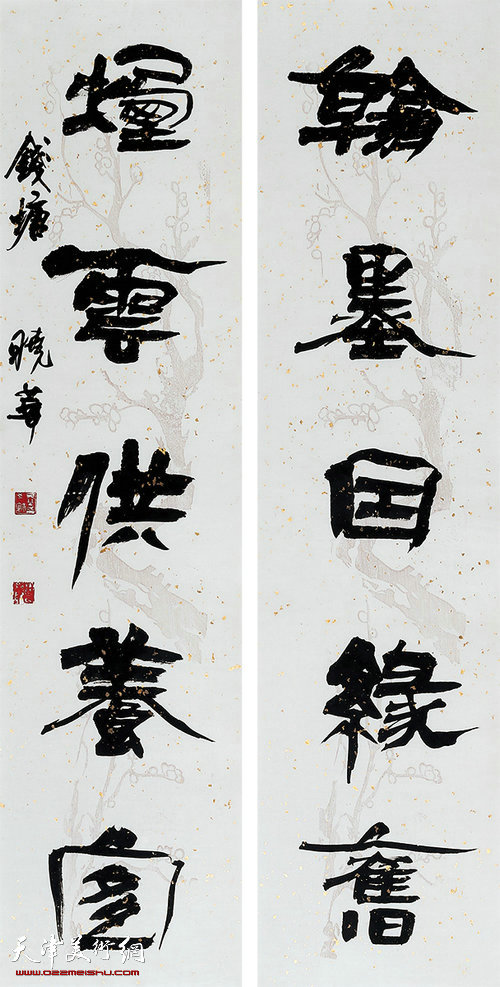 翰墨因緣舊
煙雲供養宜
錢塘 曉華
天津美術網
www.022meishu.com